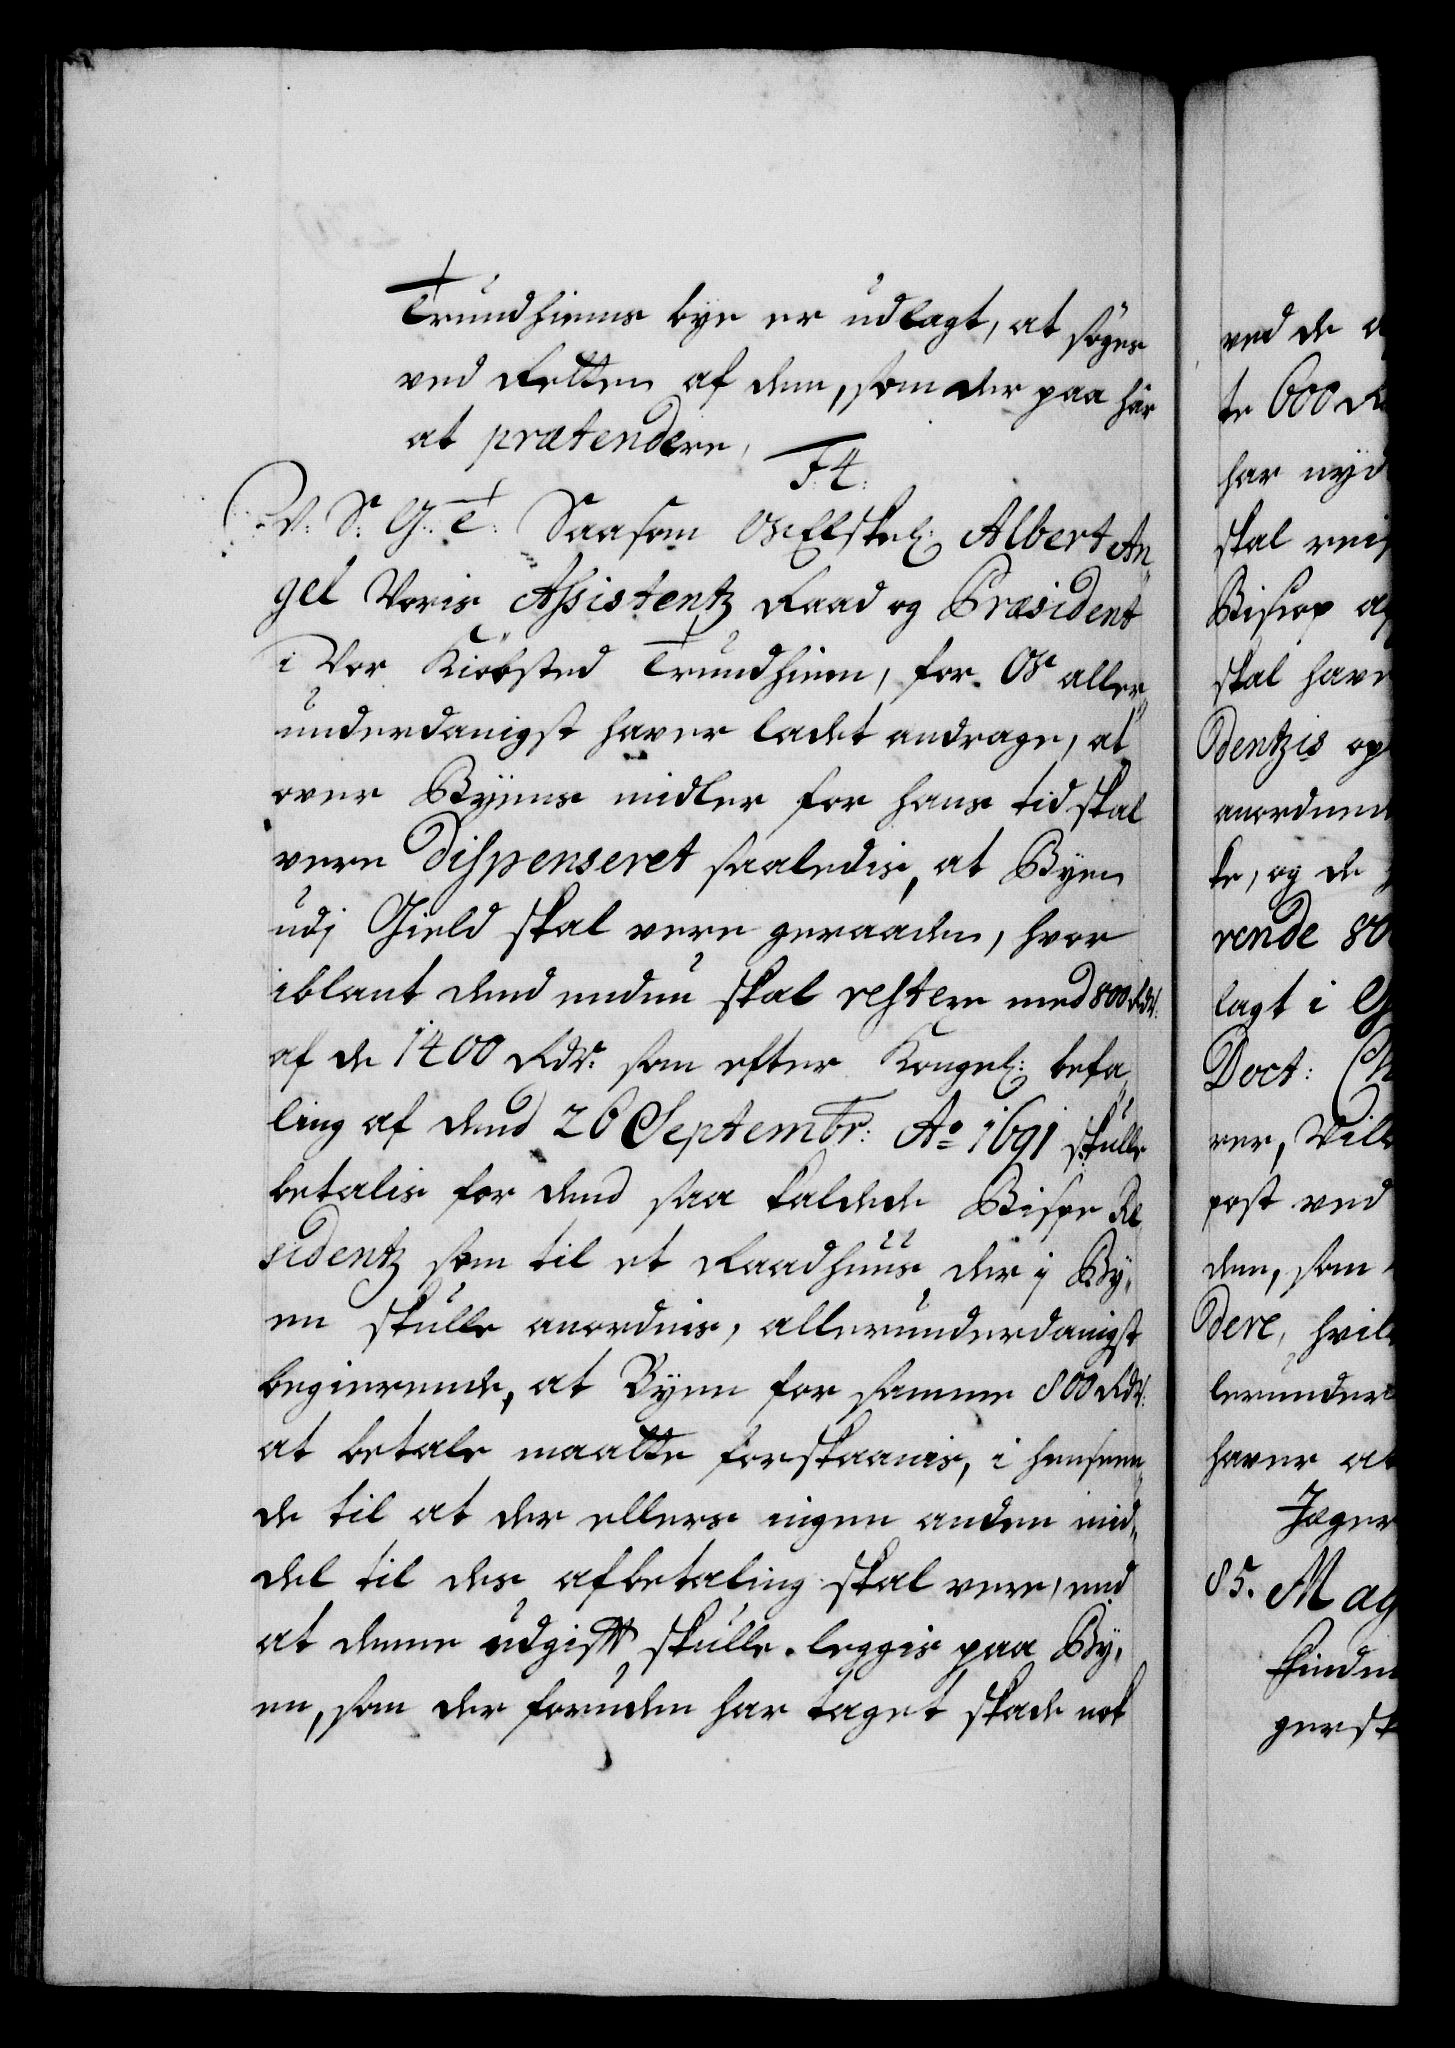 Trundhiems bye er udlagt, at søges
ved Retten af dem, som der paa har
at prætendere,
F. 4.
V: S: G: T: Saasom Os Elskel: Albert An„
gel Voris Assistentz Raad og Præsident
i Vor Kiøbsted Trundhiem, for Os aller„
underdanigst haver ladet andrage, at
over Byens midler for hans tid skal
vere dispenseret saaledis, at Byen
udj Gield skal vere geraaden, hvor
iblant dend endnu skal restere med 800 Rdr.
af de 1400 Rdr. som efter Kongel: befa„
ling af dend 26 Septembr: Ao 1691 skulle
betalis for dend saa kaldede Bispe Re„
sidentz som til et Raadhuus der j By„
en skulle anordnis, allerunderdanigst
begierende, at Byen for samme 800 Rdr.
at betale maatte forskaanis, i henseen„
de til at der ellers ingen anden mid„
del til des afbetaling skal vere, end
at denne udgifft skulle leggis paa By„
en, som der foruden har taget skade nok
ved de
te 600
har nyd
skal
Biskop
skal have
dentzis
anordnen
ke, og de
rende 80
lagt i
Doct:
rer, Vill
post ved
dem, som
dere, hvil
lerunder
haver at
Jæger
85. Mag
Findm
gersk